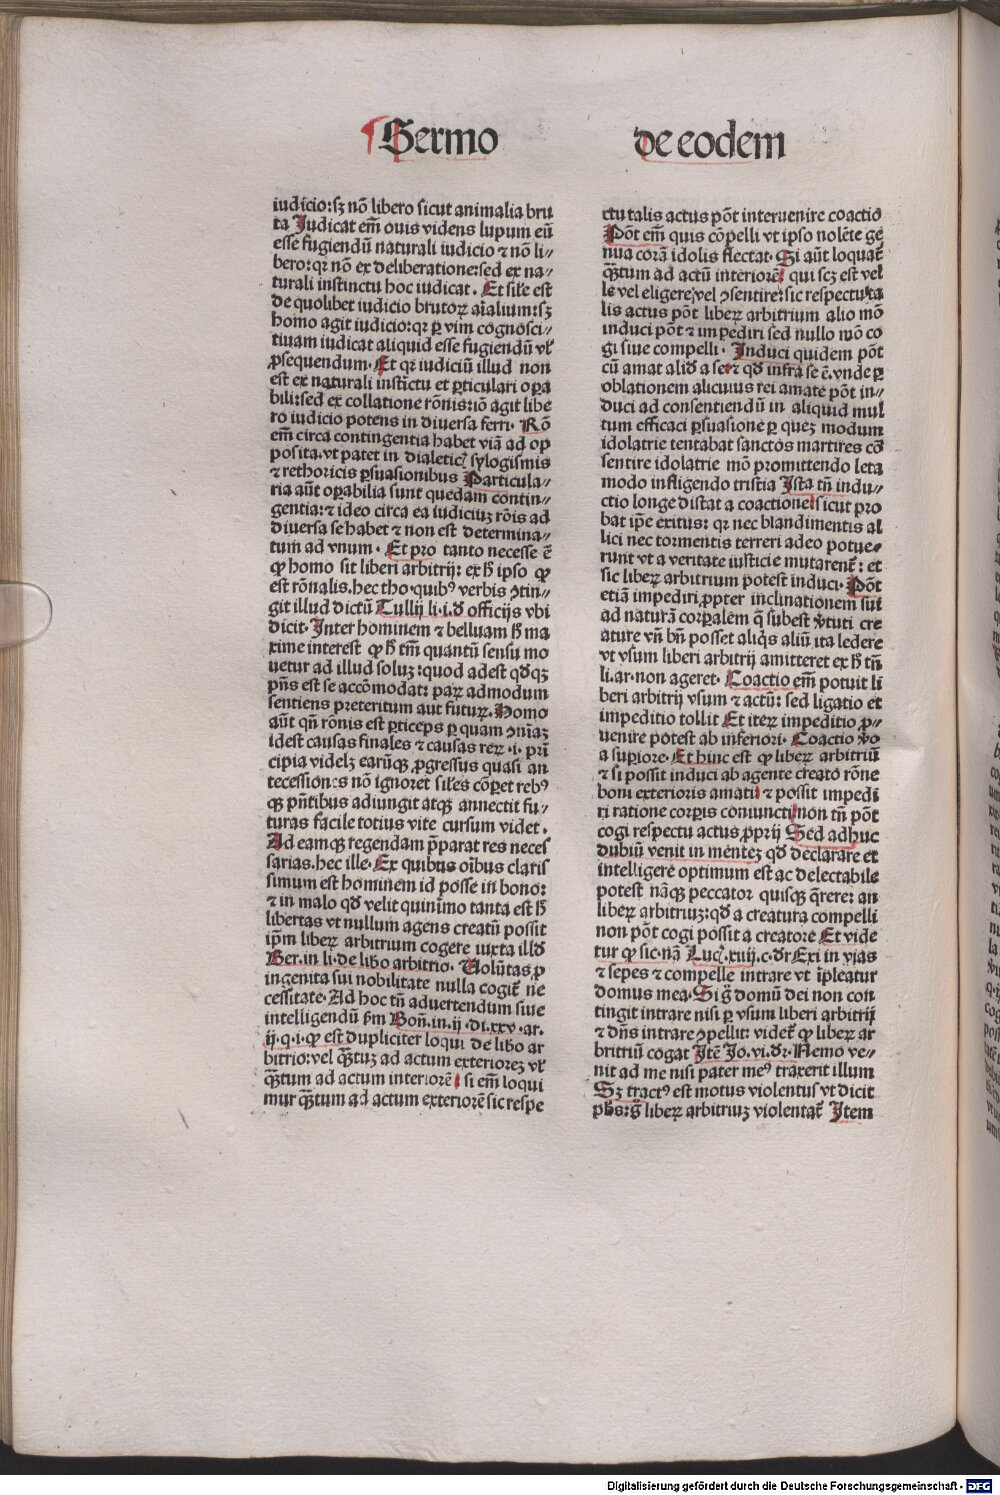 Sermo
de eodem
iudicio:sꝫ nō libero sicut animalia bru
ta Judicat em̄ ouis videns lupum eū
esse fugiendū naturali iudicio ⁊ nō li⸗
bero:qꝛ nō ex deliberatione:sed ex na⸗
turali instinctu hoc iudicat. Et sil'e est
de quolibet iudicio brutoꝝ aīalium:sꝫ
homo agit iudicio:qꝛ ꝑ vim cognosci⸗
tiuam iudicat aliquid esse fugiendū vl'
ꝓsequendum. Et qꝛ iudiciū illud non
est ex naturali instīctu et ꝑticulari oꝑa
bili:sed ex collatione rōnis:iō agit libe
ro iudicio potens in diuersa ferri. Rō
em̄ circa contingentia habet viā ad op
posita.vt patet in dialeticꝭ sylogismis
⁊ rethoricis ꝑsuasionibus Particula⸗
ria aūt oꝑabilia sunt quedam contin⸗
gentia:⁊ ideo circa ea iudiciuꝫ rōis ad
diuersa se habet ⁊ non est determina⸗
tum ad vnum. Et pro tanto necesse ē
ꝙ homo sit liberi arbitrij: ex h̄ ipso ꝙ
est rōnalis.hec tho.quibꝰ verbis ꝯtin⸗
git illud dictū Tullij li.i.đ officijs vbi
dicit. Inter hominem ⁊ belluam h̄ ma
xime interest ꝙ h̄ tm̄ quantū sensu mo
uetur ad illud soluꝫ:quod adest qđqꝫ
p̄ns est se accōmodat: paꝝ admodum
sentiens preteritum aut futuꝝ. Homo
aūt qn̄ rōnis est ꝑticeps ꝑ quam ꝯn̄iaꝫ
idest causas finales ⁊ causas reꝝ .i. prī
cipia videlꝫ earūqꝫ ꝓgressus quasi an
tecessiones nō ignoret sil'es cōꝑet rebꝰ
qꝫ pn̄tibus adiungit atqꝫ annectit fu⸗
turas facile totius vite cursum videt.
Ad eamqꝫ regendam p̄parat res neces
sarias.hec ille. Ex quibus oībus claris
simum est hominem id posse in bono:
⁊ in malo qđ velit quinīmo tanta est h̄
libertas vt nullum agens creatū possit
ip̄m libeꝝ arbitrium cogere iuxta illđ
Ber.in li.de libo arbitrio. Volūtas ꝓ
ingenita sui nobilitate nulla cogit᷑ ne
cessitate. Ad hoc tn̄ aduertendum siue
intelligendū ẜm Bon̄.in.ij.di.xxv.ar.
ij.q.i.ꝙ est dupliciter loqui de libo ar
bitrio:vel q̄ꝫtuꝫ ad actum exterioreꝫ vl'
q̄ꝫtum ad actum interiorē si em̄ loqui
mur q̄ꝫtum ad actum exteriorē sic respe
ctu talis actus pōt interuenire coactio
Pōt em̄ quis cōpelli vt ipso nolēte ge
nua corā idolis flectat. Si aūt loquat᷑
q̄ꝫtum ad actū interiorē qui scꝫ est vel
le vel eligere vel ꝯsentire:sic respectu ta
lis actus pōt libeꝝ arbitrium alio mō
induci pōt ⁊ impediri sed nullo mō co
gi siue compelli. Induci quidem pōt
cū amat aliđ a se ⁊ qđ infra se ē.vnde ꝑ
oblationem alicuius rei amate pōt in⸗
duci ad consentiendū in aliquid mul
tum efficaci ꝑsuasione ꝑ queꝫ modum
idolatrie tentabat sanctos martires cō
sentire idolatrie mō promittendo leta
modo infligendo tristia Ista tn̄ indu⸗
ctio longe distat a coactione sicut pro
bat ip̄e exitus: qꝛ nec blandimentis al
lici nec tormentis terreri adeo potue⸗
runt vt a veritate iusticie mutarent᷑: et
sic libeꝝ arbitrium potest induci. Pōt
etiā impediri ꝓpter inclinationem sui
ad naturā corꝑalem q̄ subest v̓tuti cre
ature vn̄ bn̄ posset aliq̇s aliū ita ledere
vt vsum liberi arbitrij amitteret ex h̄ tn̄
li.ar.non ageret. Coactio em̄ potuit li
beri arbitrij vsum ⁊ actū: sed ligatio et
impeditio tollit Et iteꝝ impeditio ꝓ⸗
uenire potest ab inferiori. Coactio v̓o
a suꝑiore. Et hinc est ꝙ libeꝝ arbitriū
⁊ si possit induci ab agente creato rōne
boni exterioris amati ⁊ possit impedi
ri ratione corꝑis coniuncti non tn̄ pōt
cogi respectu actus ꝓprij Sed adhuc
dubiū venit in menteꝫ qđ declarare et
intelligere optimum est ac delectabile
potest nāqꝫ peccator quisqꝫ q̄rere: an
libeꝝ arbitriuꝫ:qđ a creatura compelli
non pōt cogi possit a creatore Et vide
tur ꝙ sic.nā Lucꝭ.xiiij.c.dr̄ Exi in vias
⁊ sepes ⁊ compelle intrare vt īpleatur
domus mea. Si g̊ domū dei non con
tingit intrare nisi ꝑ vsum liberi arbitrij
⁊ dn̄s intrare ꝯpellit: videt᷑ ꝙ libeꝝ ar
britriū cogat Itē Jo.vi.dr̄. Nemo ve⸗
nit ad me nisi pater meꝰ traxerit illum
Sꝫ tractꝰ est motus violentus vt dicit
ph̄s:g̊ libeꝝ arbitriuꝫ violentat᷑ Item
Digitalisierung gefördert durch die Deutsche Forschungsgemeinschaft - DFG